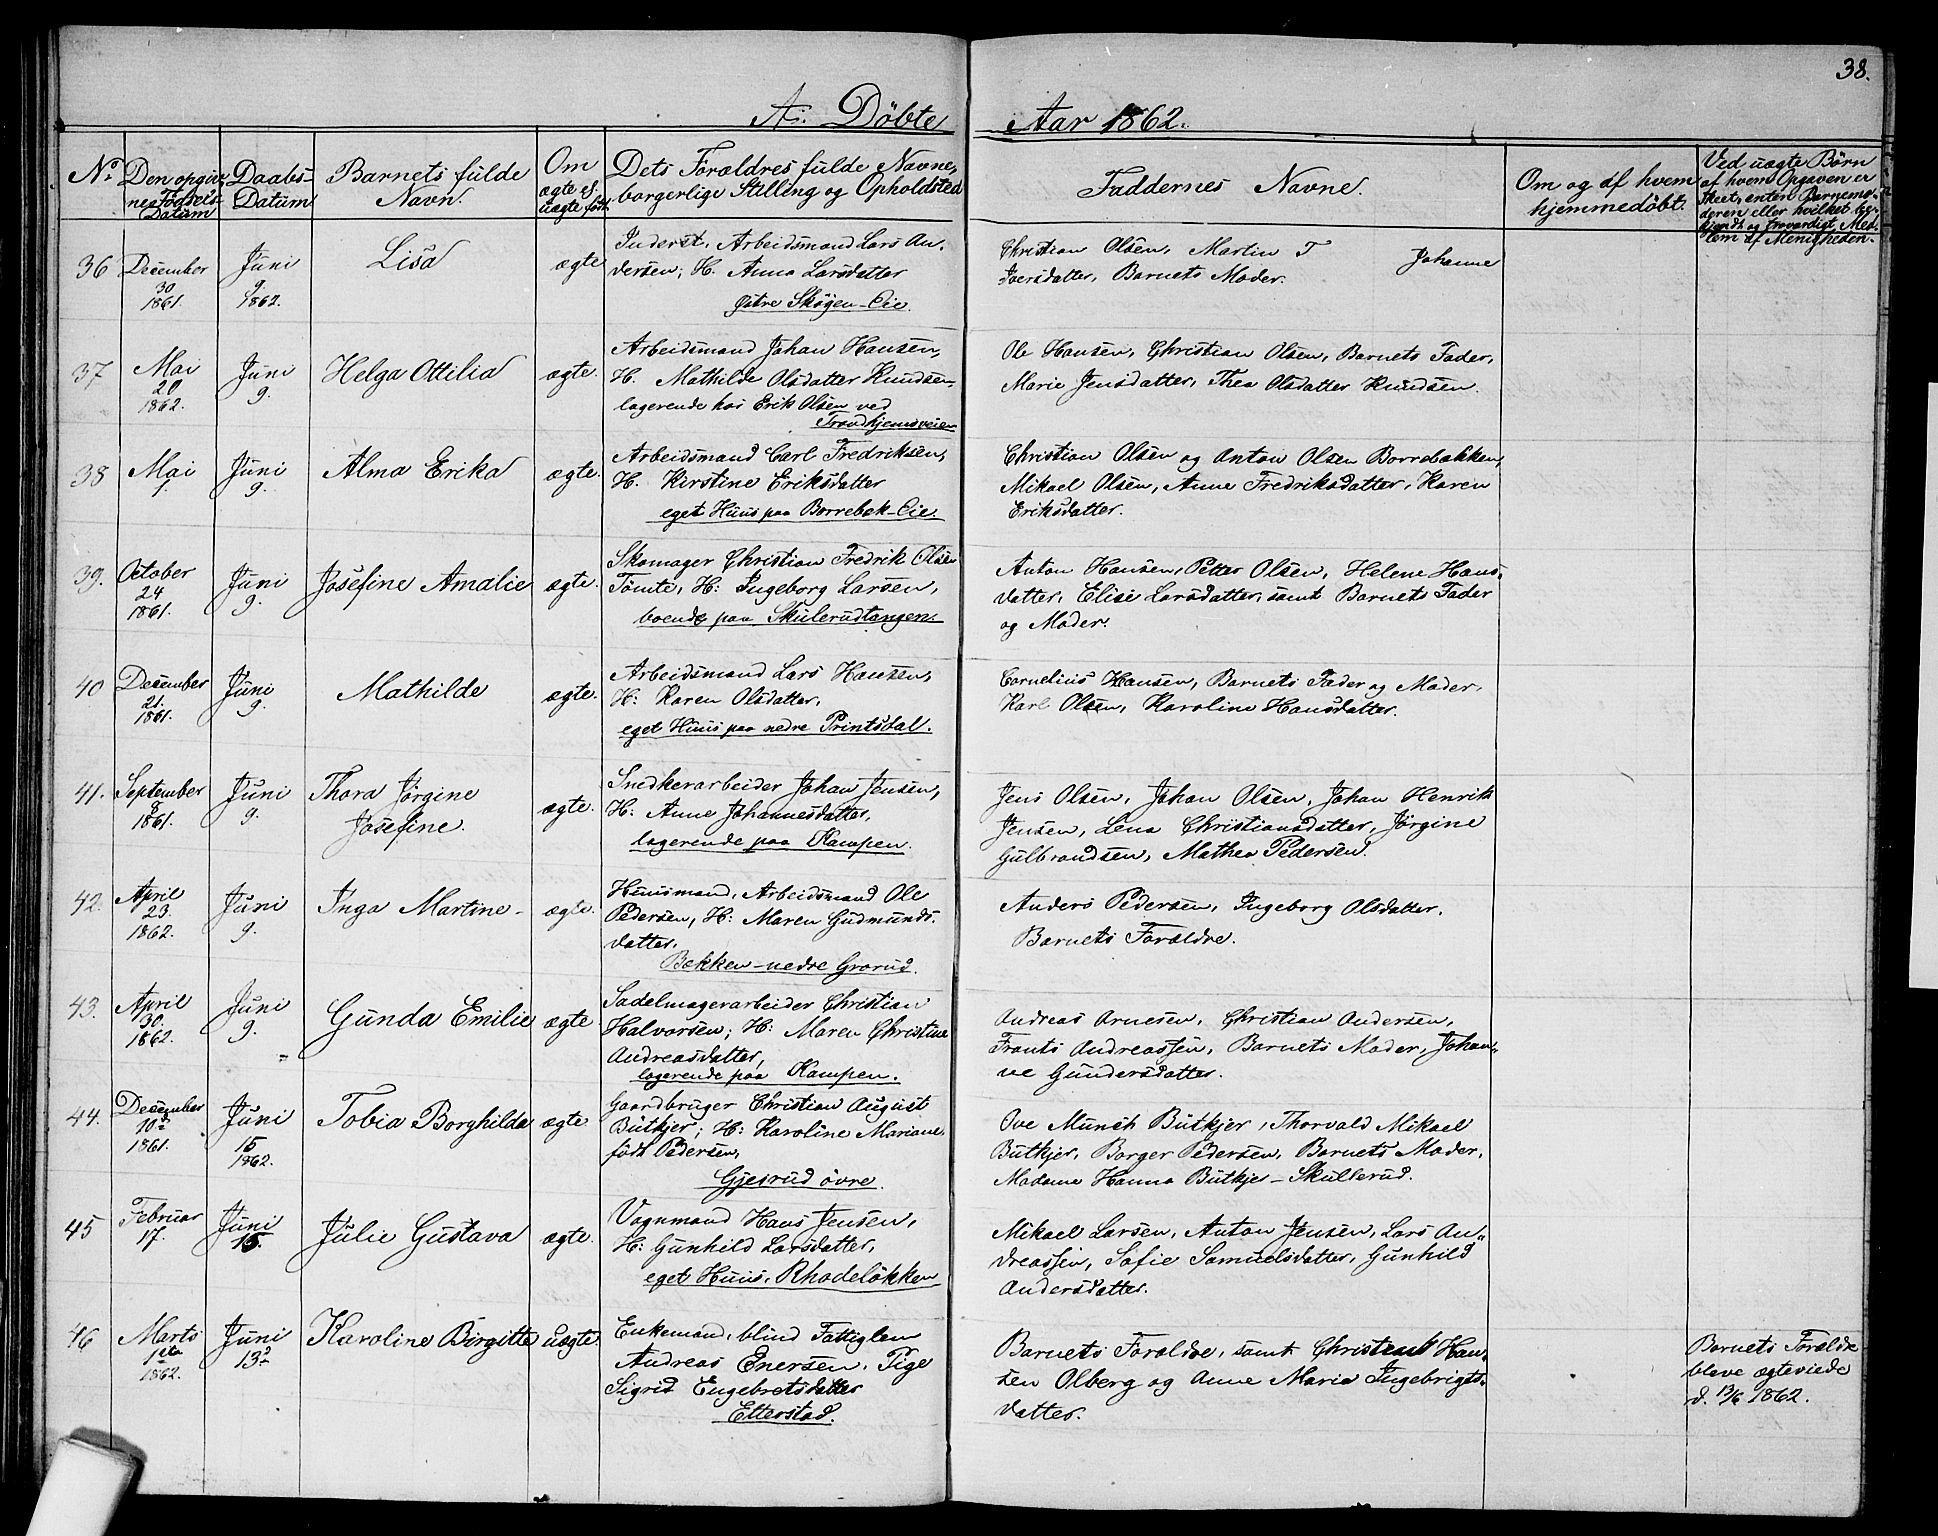 38.
A: Döbte Aar 1862.
No. Den opgivne Födsels Datum
Daabs-Datum
Barnets fulde Navn.
Om ægte el. uægte født
Dets Forældres fulde Navne, borgerlige Stilling og Opholdsted
Faddernes Navne.
Om og af hvem hjemmedøbt.
Ved uægte Børn af hvem Opgaven er skeet, enten Barnemoderen eller hvilket bekjendt og troværdigt Medlem af Menigheden.
36 December 30 1861. Juni 9. 1862. Lisa ægte
Inderst, Arbeidsmand Lars An-
dersen, H. Anna Larsdatter
østre Skøyen-Eie.
Christian Olsen, Martin T Johanne
Iversdatter, Barnets Moder.
37 Mai 20. 1862. Juni 9. Helga Ottilia ægte.
Arbeidsmand Johan Hansen,
H. Mathilde Olsdatter Knudsen-
logerende hos Erik Olsen ved
Trondhjemsveien
Ole Hansen, Christian Olsen, Barnets Fader,
Marie Jensdatter, Thea Olsdatter Knudsen.
38 Mai 1. Juni 9. Alma Erika ægte.
Arbeidsmand Carl Fredriksen,
H. Kirstine Eriksdatter
eget Huus paa Borrebæk-Eie.
Christian Olsen og Anton Olsen Borrebækken,
Mikael Olsen, Anne Fredriksdatter, Karen
Eriksdatter.
39. October 24 1861. Juni 9. Josefine Amalie ægte.
Skomager Christian Fredrik Olsen
Tömte, H: Ingeborg Larsen,
boende paa Skulerudtangen.
Anton Hansen, Petter Olsen, Helene Hans-
datter, Elise Larsdatter, samt Barnets Fader
og Moder.
40 December 21. 1861. Juni 9. Mathilde ægte.
Arbeidsmand Lars Hansen,
H: Karen Olsdatter,
eget Huus paa nedre Printsdal.
Cornelius Hansen, Barnets Fader og Moder,
Karl Olsen, Karoline Hansdatter.
41. September 8 1861. Juni 9. Thora Jörgine
Josefine. ægte.
Snedkerarbeider Johan Jensen,
H: Anne Johannesdatter,
logerende paa Kampen.
Jens Olsen, Johan Olsen, Johan Henrik
Jensen, Lena Christiansdatter, Jörgine
Gulbrandsen, Mathea Pedersen.
42. April 23. 1862. Juni 9. Inga Martine- ægte.
Huusmand, Arbeidsmand Ole
Pedersen, H: Maren Gudmunds-
datter.
Bækken-nedre Grorud.
Anders Pedersen, Ingeborg Olsdatter,
Barnets Forældre.
43. April 30. 1862. Juni 9. Gunda Emilie ægte
Sadelmagerarbeider Christian
Halvorsen; H: Maren Christine
Andreasdatter,
logerende paa Kampen.
Andreas Arnesen, Christian Andersen,
Frants Andreassen, Barnets Moder, Johan-
ne Gundersdatter.
44. December 10de 1861. Juni 15 1862. Tobia Borghilda ægte
Gaardbruger Christian August
Bütkjer; H: Karoline Mariane
født Pedersen,
Gjesrud övre.
Ove Munch Butkjer, Thorvald Mikael
Butkjer, Borger Pedersen, Barnets Moder,
Madame Hanna Butkjer-Skullerud.
45 Februar 17. Juni 15. Julie Gustava ægte.
Vognmand Hans Jensen,
H: Gunhild Larsdatter,
eget Huus, Rhodelökken
Mikael Larsen, Anton Jensen, Lars An-
dreassen, Sofie Samuelsdatter, Gunhild
Andersdatter.
46 Marts 1ste 1862. Juni 13de Karoline Birgitte uægte.
Enkemand, blind Fattiglem
Andreas Enersen, Pige
Sigrid Engebretsdatter
Etterstad.
Barnets Forældre, samt Christent Han-
sen Olberg og Anne Maria Ingebrigts-
datter.
Barnets Forældre
bleve ægteviede
d. 13/6 1862.